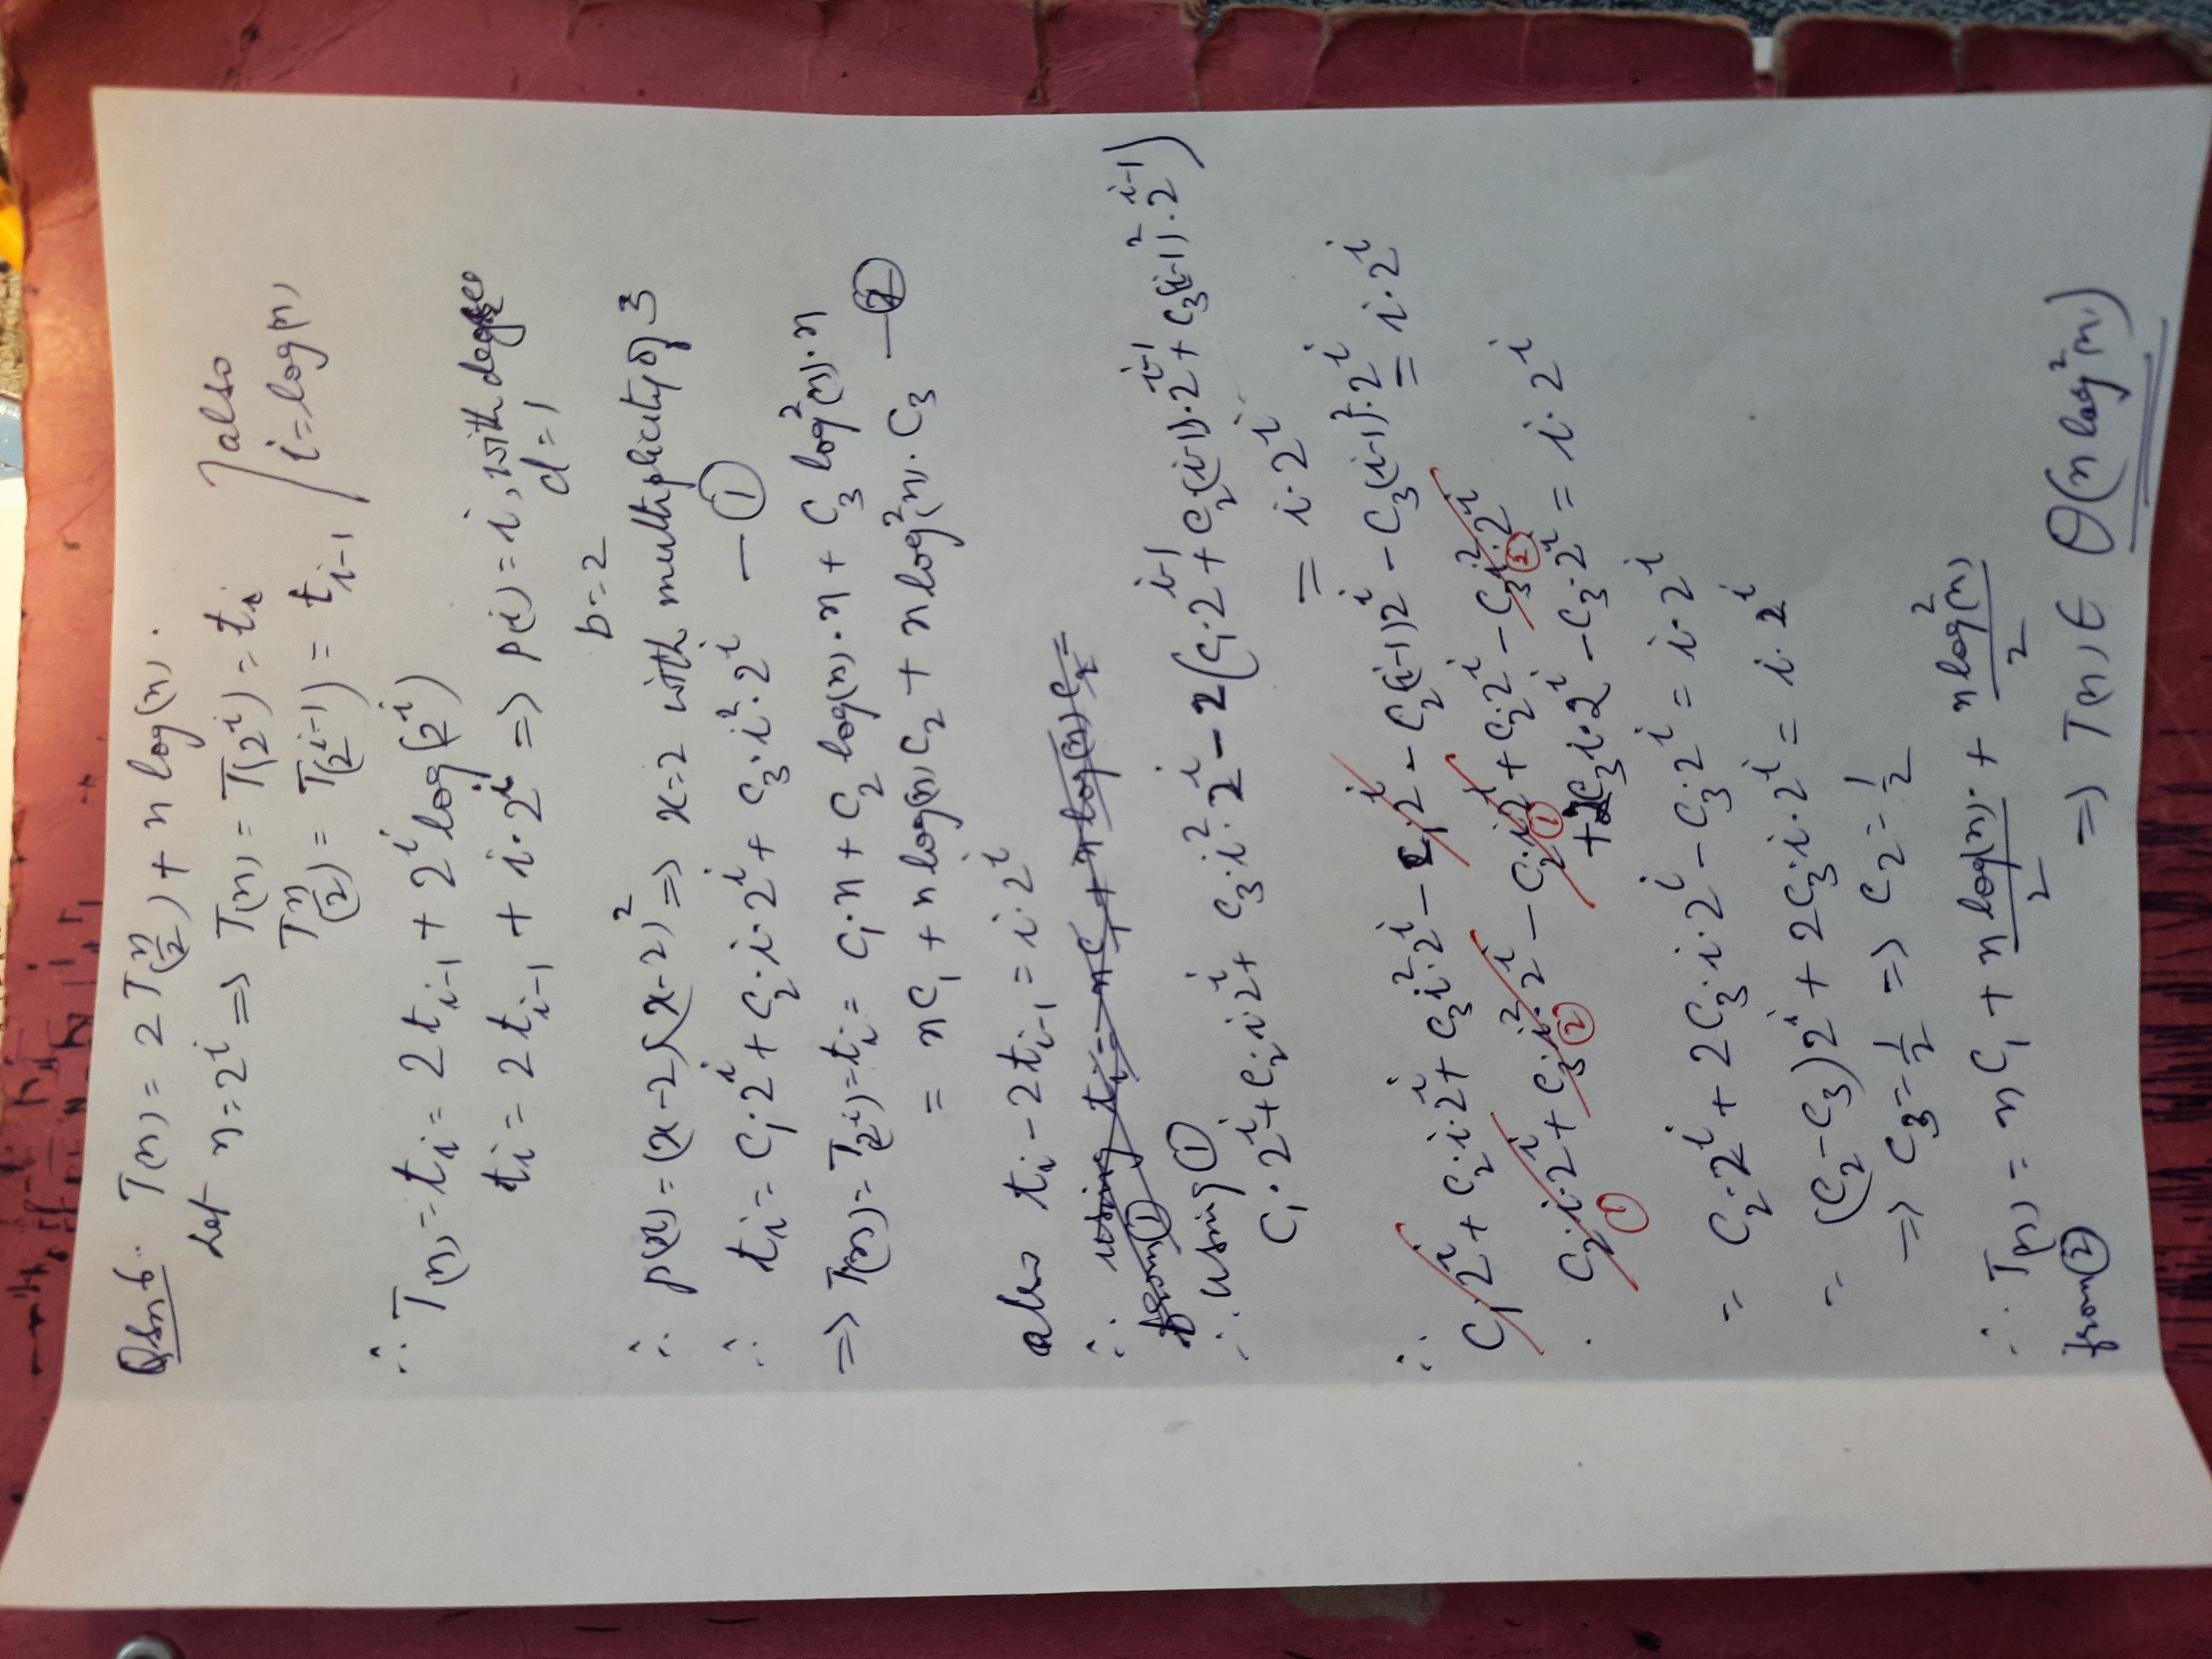 Qsn 6. T(n) = 2 T(n/2) + n log(n).
Let n = 2^i => T(n) = T(2^i) = t_i / also
T(n/2) = T(2^(i-1)) = t_(i-1) / i = log(n)
∴ T(n) = t_i = 2t_(i-1) + 2^i log(2^i)
t_i = 2t_(i-1) + i·2^i => p(i) = i, with degree
d = 1
b = 2
∴ p(x) = (x-2)(x-2)^2 => x = 2 with multiplicity of 3
∴ t_i = C_1·2^i + C_2·i·2^i + C_3·i^2·2^i — ①
=> T(n) = T(2^i) = t_i = C_1·n + C_2 log(n)·n + C_3 log^2(n)·n
= nC_1 + n log(n) C_2 + n log^2(n)·C_3 — ②
also t_i - 2t_(i-1) = i·2^i
∴ using t_i = nC_1 + n log(n) C_2 =
from ①
∴ using ①
C_1·2^i + C_2·i·2^i + C_3·i^2·2^i - 2(C_1·2^(i-1) + C_2(i-1)·2^(i-1) + C_3(i-1)^2·2^(i-1))
= i·2^i
∴ C_1·2^i + C_2·i·2^i + C_3 i^2·2^i - C_1·2^i - C_2(i-1)2^i - C_3(i-1)^2·2^i = i·2^i
C_2·i·2^i + C_3·i^2·2^i - C_2·i·2^i + C_2·2^i - C_3 i^2·2^i
① ② ① ②
+2C_3 i·2^i - C_3·2^i = i·2^i
= C_2·2^i + 2C_3·i·2^i - C_3·2^i = i·2^i
= (C_2 - C_3)2^i + 2C_3·i·2^i = i·2^i
=> C_3 = 1/2 => C_2 = 1/2
∴ T(n) = nC_1 + n log(n)/2 + n log^2(n)/2
from ②
=> T(n) ∈ Θ(n log^2(n))